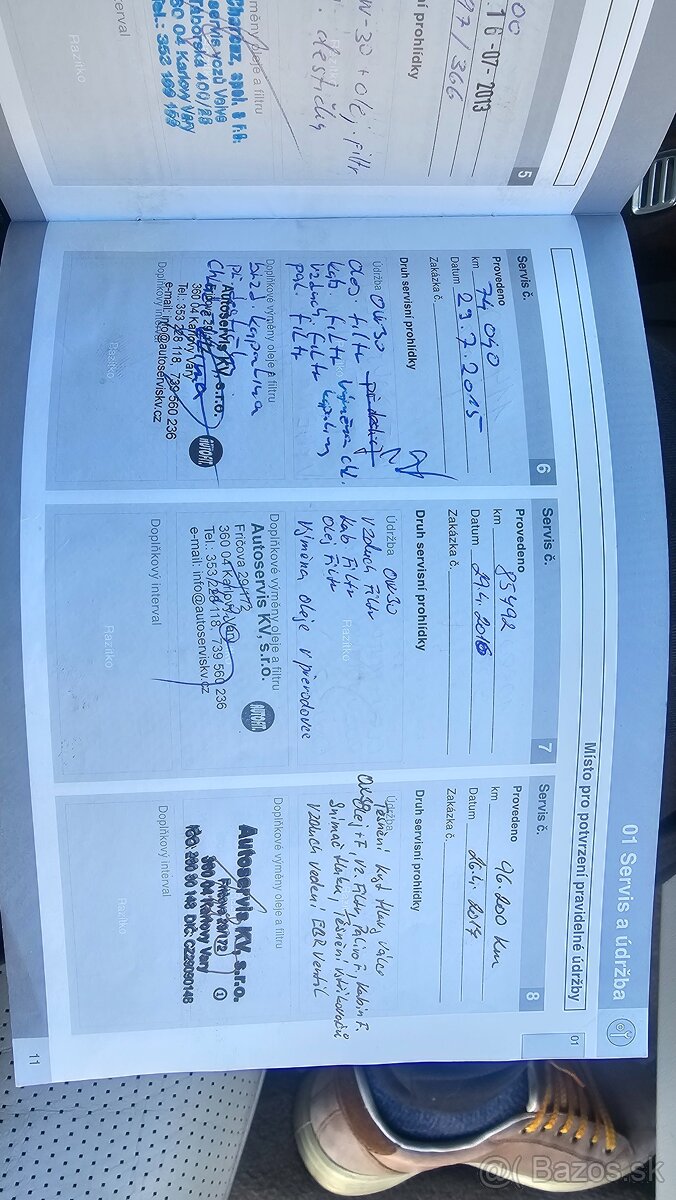 01 Servis a údržba
Místo pro potvrzení pravidelné údržby
01
00
. 1 6 -07- 2013
97/366
ní prohlídky
W-30 + olej. filtr
. destičky
Razítko
výměny oleje a filtru
Charouz, spol. s r.o.
servis vozů Volvo
Táborská 400/28
360 04 Karlovy Vary
Tel.: 353 169 168
nterval
Razítko
5
Servis č.
6
Provedeno
km 74 040
Datum 29.7.2015
Zakázka č.
Druh servisní prohlídky
Údržba OW30
olej filtr
kab. filtr výměna chl.
vzduch. filtr kapaliny
pal. filtr
Doplňkové výměny oleje a filtru
brzd kapalina
Autoservis KV, s.r.o.
360 04 Karlovy Vary
Tel.: 353 228 118, 739 560 236
e-mail: info@autoserviskv.cz
AUTOFIT
Doplňkový interval
Razítko
Servis č.
7
Provedeno
km 85492
Datum 29.4.2016
Zakázka č.
Druh servisní prohlídky
Údržba OW30
vzduch Filtr
kab Filtr
olej Filtr
Razítko
Výměna oleje v převodovce
Doplňkové výměny oleje a filtru
Autoservis KV, s.r.o.
Fričova 291/12
360 04 Karlovy Vary
Tel.: 353 228 118 739 560 236
e-mail: info@autoserviskv.cz
AUTOFIT
Doplňkový interval
Razítko
Servis č.
8
Provedeno
km 96.200 km
Datum 26.4.2017
Zakázka č.
Druh servisní prohlídky
Údržba
Těsnění kryt hlavy válců
olej+F, vz. Filtr, Palivo F, kabin F.
Snímač tlaku, Těsnění vstřikovačů
vzduch vedení EGR ventil
Doplňkové výměny oleje a filtru
Autoservis KV, s.r.o.
Fričova 291/12
360 04 Karlovy Vary
IČO: 290 90 148 DIČ: CZ29090148
1
Doplňkový interval
Razítko
11
@( Bazos.sk